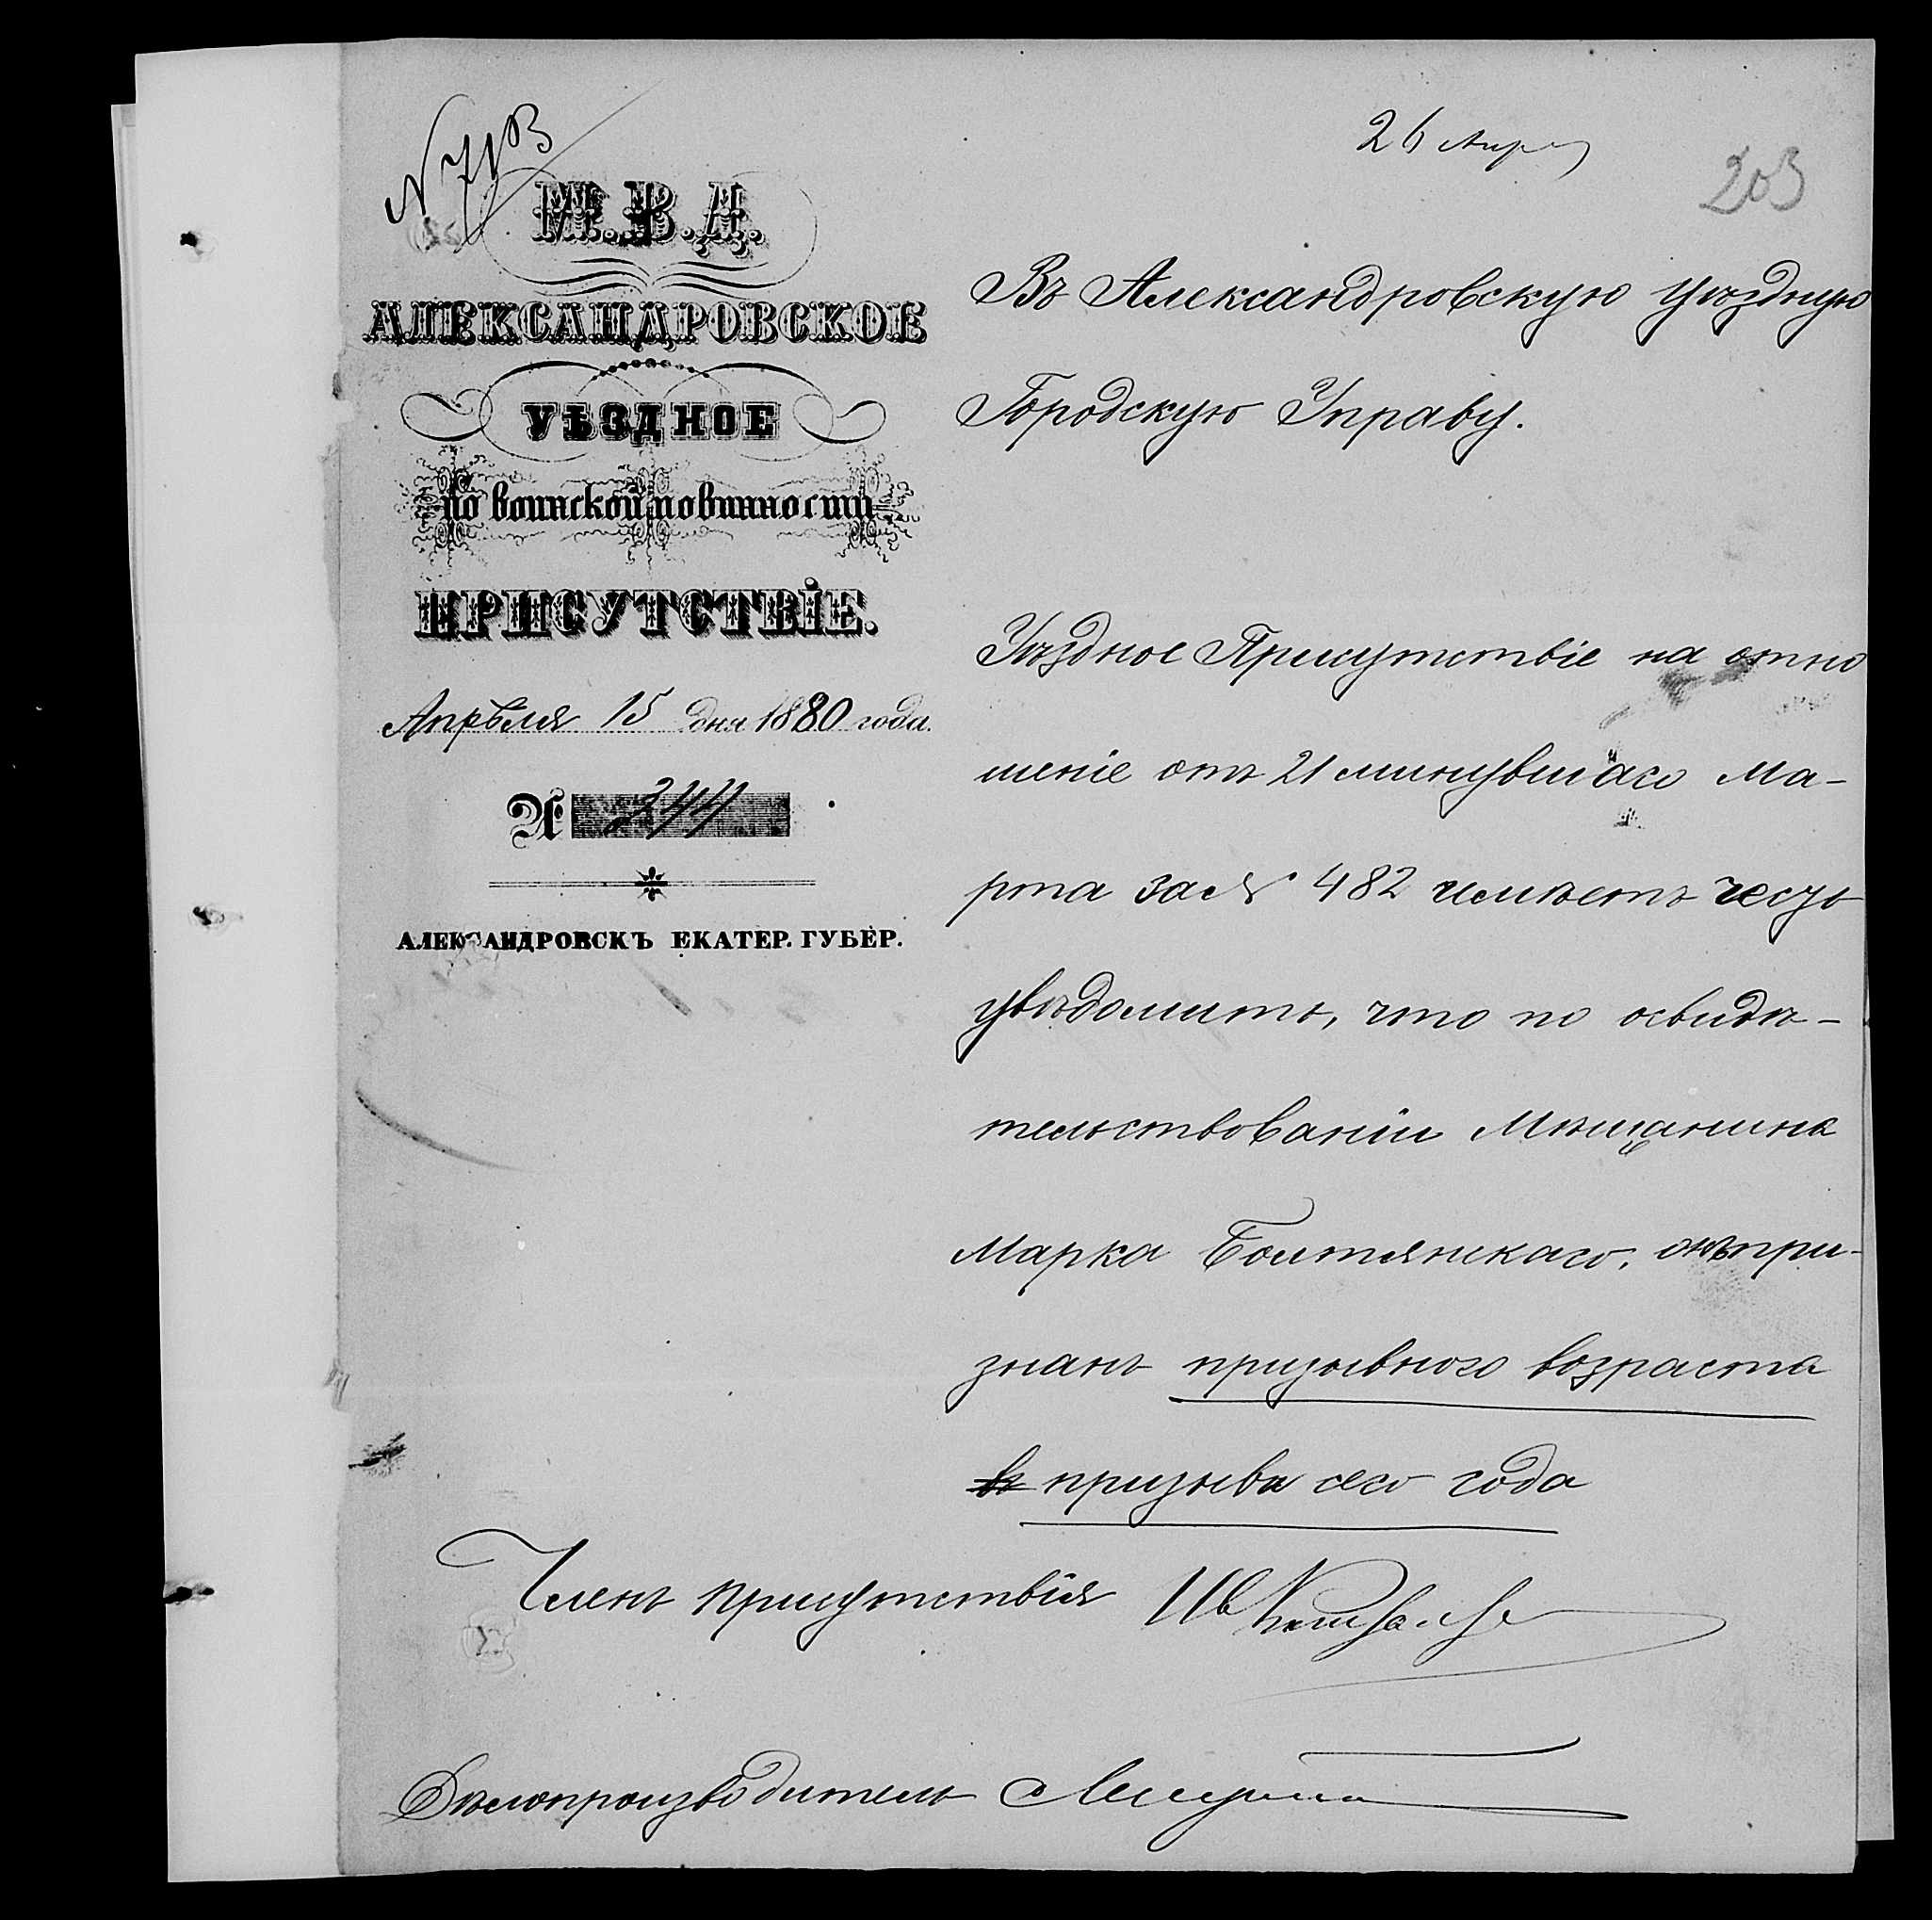 N 713
26 Апр
203
М.В.Д.
АЛЕКСАНДРОВСКОЕ
УѢЗДНОЕ
по воинской повинности
ПРИСУТСТВІЕ.
Апрѣля 15 дня 1880 года.
№ 244
АЛЕКСАНДРОВСКЪ ЕКАТЕР. ГУБЕР.
Въ Александровскую уѣздную
Городскую Управу.
Уѣздное Присутствіе на отно
шеніе отъ 21 минувшаго Ма-
рта за № 482 имѣетъ честь
увѣдомить, что по освидѣ-
тельствованіи Мѣщанина
Марка Болтянскаго, онъ при-
знанъ призывного возраста
въ призыва сего года
Членъ присутствія Ив
Дѣлопроизводитель